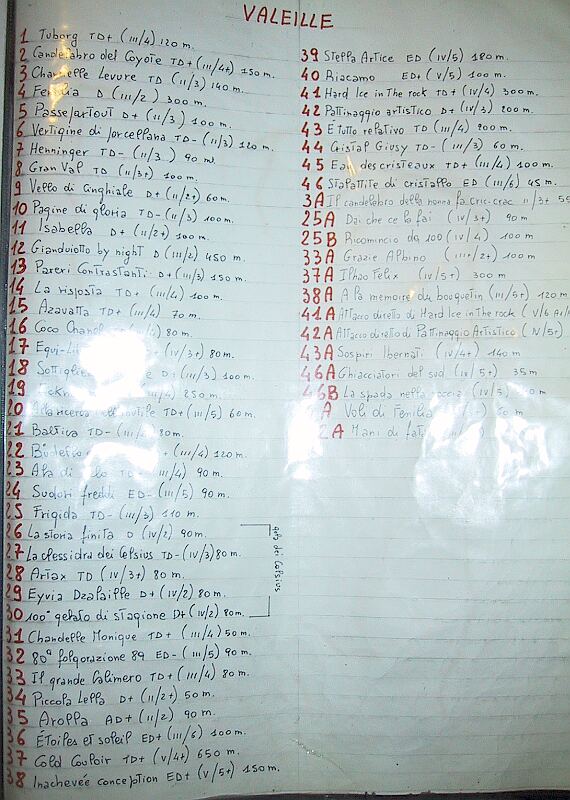 VALEILLE
1 Tuborg TD+ (III/4) 120 m.
2 Candelabro del Coyote TD+ (III/4+) 150 m.
3 Chandelle Levure TD (II/3) 140 m.
4 D (III/2) 300 m.
5 Passepartout D+ (II/3) 100 m.
6 Vertigine di porcellana TD- (II/3) 120 m.
7 Henninger TD- (II/3..) 90 m.
8 Gran Val TD (II/3+) 100 m.
9 Vello di Cinghiale D+ (II/2+) 60m.
10 Pagine di gloria TD- (II/3) 100m.
11 Isabella D+ (II/2+) 100m.
12 Gianduiotto by night D (II/2) 450 m.
13 Pareri Contrastanti D+ (II/3) 150 m.
14 La risposta TD+ (III/4) 100 m.
15 Azavatta TD+ (III/4) 70 m.
16 Coco 80 m.
17 (IV/3+) 80m.
18 D+ (II/3) 100m.
19 250m.
20 TD+ (III/5) 60m.
21 Baltica TD- 80m.
22 (III/4) 120m.
23 (III/4) 90 m.
24 Sudori freddi ED- (III/5) 90m.
25 Frigida TD- (III/3) 110 m.
26 La storia finita D (IV/2) 90m.
27 La clessidra dei Celsius TD- (IV/3) 80m.
28 Artax TD (IV/3+) 80 m.
29 Eyvia Dzalaille D+ (IV/2) 80m.
30 100° gelato di stagione D+ (IV/2) 80m.
dei Celsius
31 Chandelle Monique TD+ (III/4) 50m.
32 80° folgorazione 89 ED- (III/5) 90 m.
33 Il grande Calimero TD+ (III/4) 80m.
34 Piccola Lella D+ (II/2+) 50 m.
35 Arolla AD+ (II/2) 90 m.
36 Étoiles et soleil ED+ (III/6) 100m.
37 Cold Couloir TD+ (V/4+) 650 m.
38 Inachevée conception ED+ (V/5+) 150m.
39 Stella Artice ED (IV/5) 180m.
40 Riacamo ED+ (V/5) 100m.
41 Hard Ice in the rock TD+ (IV/4) 300m.
42 Pattinaggio artistico D+ (IV/3) 200m.
43 È tutto relativo TD (III/4) 200m.
44 Cristal Giusy TD- (III/3) 60m.
45 Eau des cristeaux TD+ (III/4) 100m.
46 Stalattite di cristallo ED (III/6) 45 m.
3A Il candelabro della nonna fa cric-crac II/3+
25A Dai che ce la fai (IV/3+) 90 m
25B Ricomincio da 100 (IV/4) 100 m
33A Grazie Albino (III+/2+) 100 m
37A Ilhao Felix (IV/5+) 300 m
38A A la memoire du bouquetin (III/5+) 120 m
41A Attacco diretto di Hard Ice in the rock
42A Attacco diretto di Pattinaggio Artistico (IV/5+)
43A Sospiri Ibernati (IV/4+) 140 m
46A Ghiacciatori del sud (IV/5+) 35m
46B La spada nella roccia (IV/5)
A Voli di Fenilia
2A Mani di